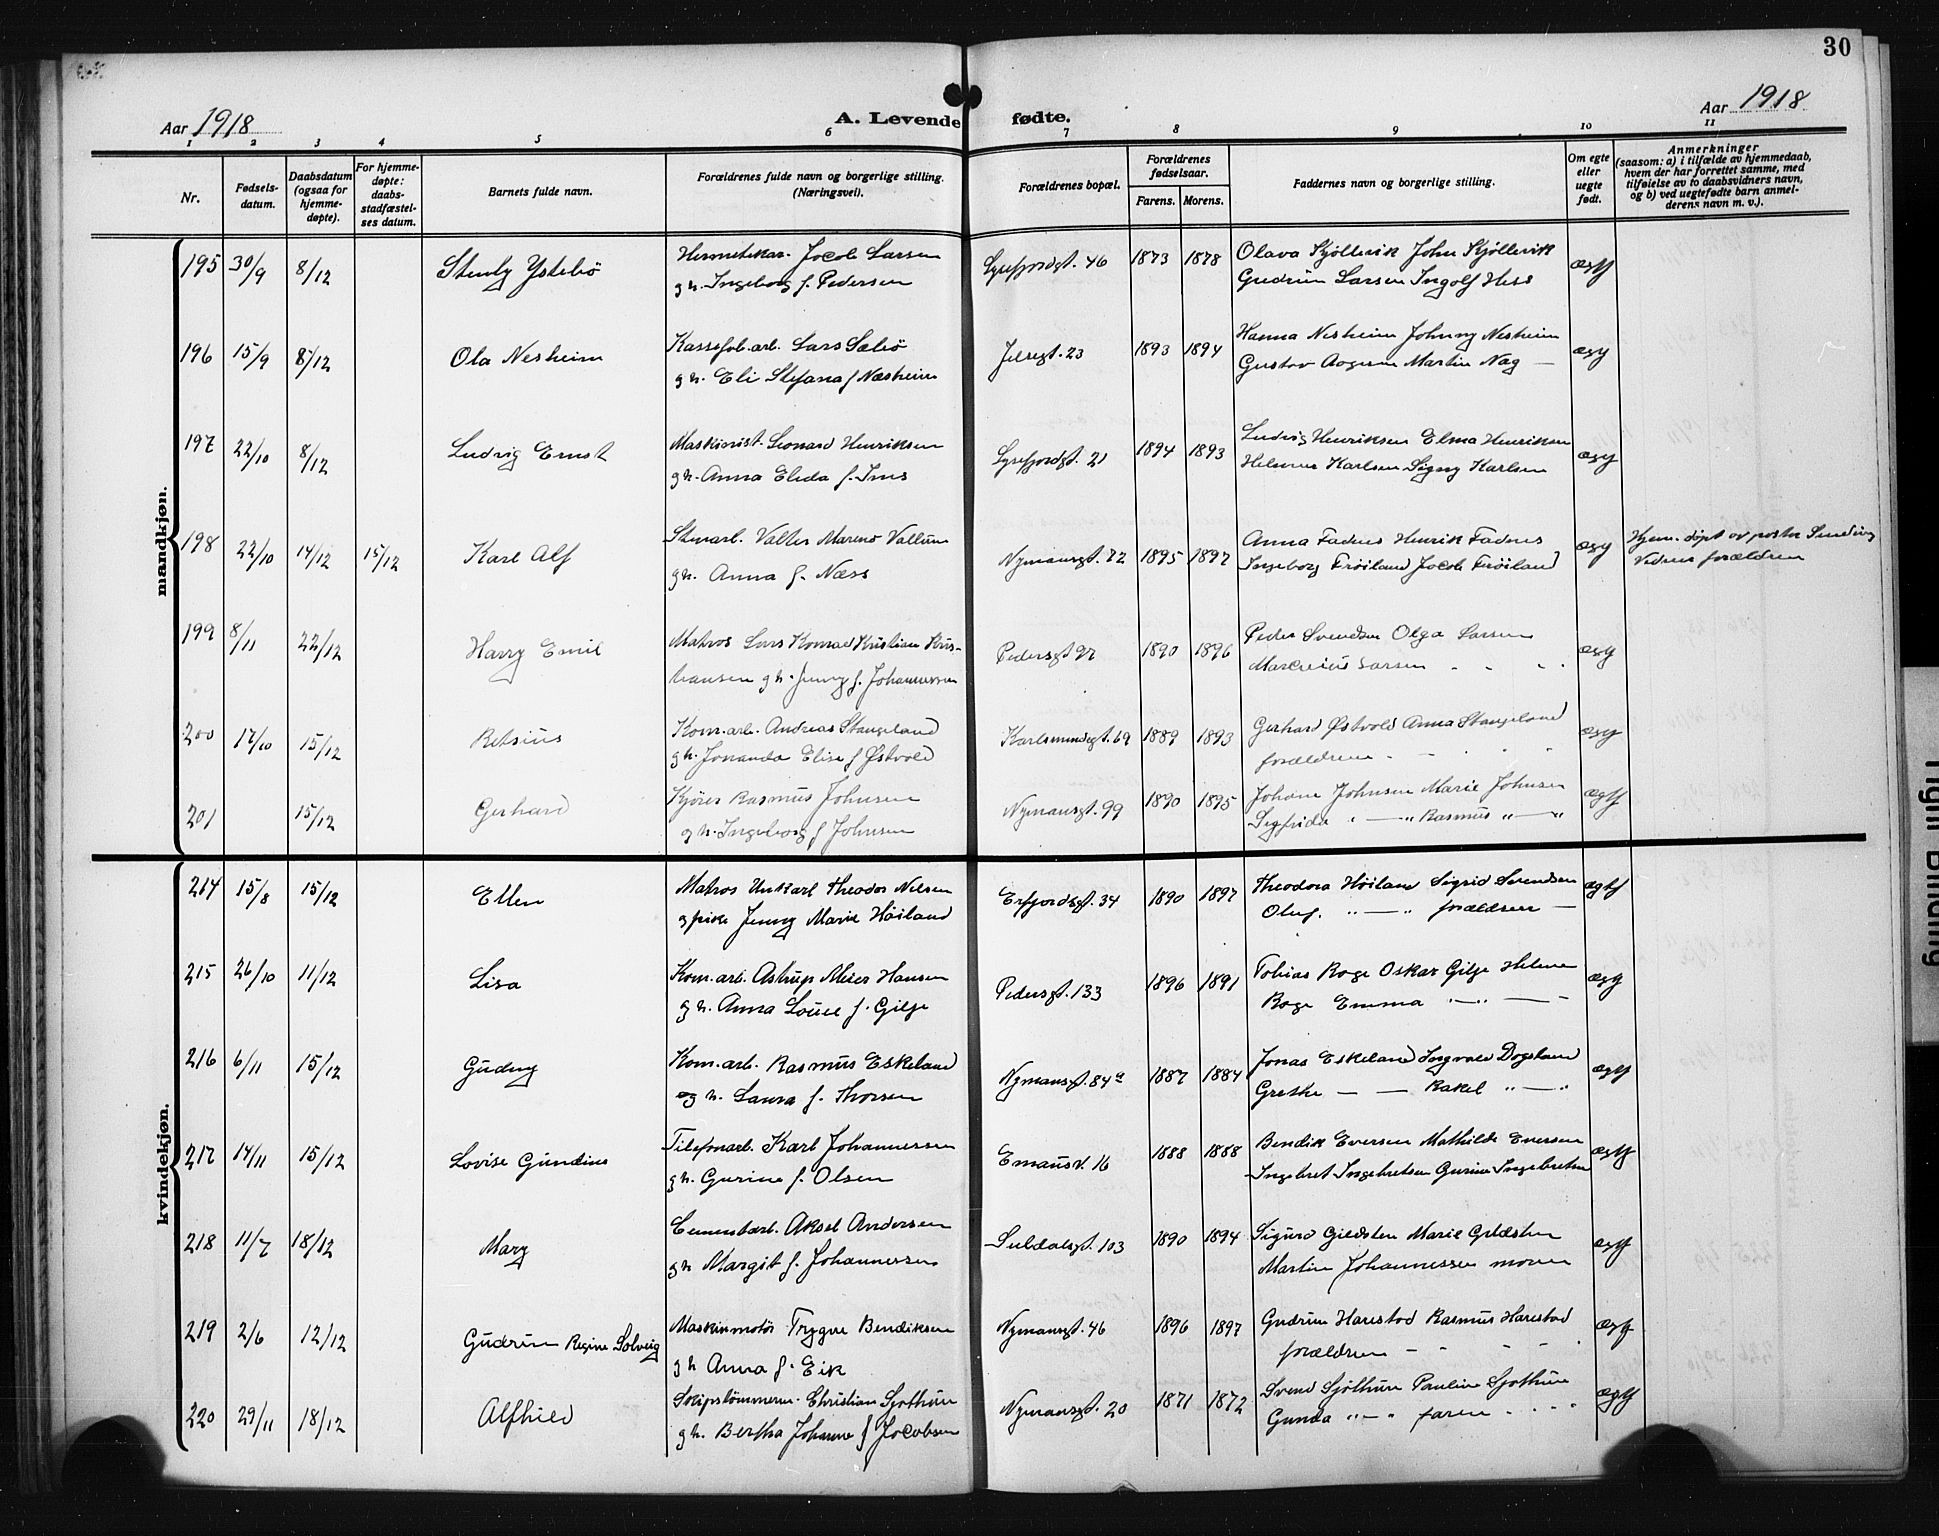 30
Aar 1918
A. Levende fødte.
Aar 1918
1 2 3 4 5 6 7 8 9 10 11
Nr.
Fødsels-
datum.
Daabsdatum
(ogsaa for
hjemme-
døpte).
For hjemme-
døpte:
daabs-
stadfæstel-
ses datum.
Barnets fulde navn.
Forældrenes fulde navn og borgerlige stilling.
(Næringsvei).
Forældrenes bopæl.
Forældrenes
fødselsaar.
Farens. Morens.
Faddernes navn og borgerlige stilling.
Om egte
eller
uegte
født.
Anmerkninger
(saasom: a) i tilfælde av hjemmedaab,
hvem der har forrettet samme, med
tilføielse av to daabsvidners navn,
og b) ved uegtefødte barn anmel-
derens navn m. v.).
mandkjøn.
195 30/9 8/12 Stenly Ystebø
Hermetikar. Jocob Larsen
g h. Ingeborg f. Pedersen
Lysefjordgt. 46 1873 1878
Olava Kjøllevik John Kjøllevik
Gudrun Larsen Ingolf Hess
ægtf
196 15/9 8/12 Ola Nesheim
Kassefab.arb. Lars Sæbø
g h. Eli Stefana f Næsheim
Jelsegt. 23 1893 1894
Hanna Nesheim Johnny Nesheim
Gustav Martin Nag —
ægf
197 22/10 8/12 Ludvig Ernst
Maskinist. Leonard Henriksen
g h. Anna Elida f. Ims
Lysefjordgt. 21 1894 1893
Ludvig Henriksen Elma Henriksen
Helmer Karlsen Signy Karlsen
ægf
198 22/10 14/12 15/12 Karl Alf
Stenarb. Valter Mareno Vallum
g h. Anna f. Næss
Nymansgt. 72 1895 1897
Anna Fadnes Henrik Fadnes
Ingeborg Frøiland Jocob Frøiland
ægf
Hjem. døpt av pastor
Vidner forældren
199 8/11 22/12 Harry Emil
Matros Lars Konrad Kristian Kris-
tiansen g h. Jenny f. Johannessen
Pedersgt 97 1890 1896
Peder Svendsen Olga Larsen
Larsen - - - -
ægf
200 17/10 15/12 Retsius
Kom.arb. Andreas Stangeland
g h. Jonanda Elise f Østvold
Karlsmindegt. 69 1889 1893
Gerhard Østvold Anna Stangeland
forældrene - - - -
ægf
201 15/12 Gerhard
Kjører Rasmus Johnsen
g h. Ingeborg f Johnsen
Nymansgt. 99 1890 1895
Johane Johnsen Marie Johnsen
Segfrida " — " Rasmus " — "
ægtf
kvindekjøn.
214 15/8 15/12 Ellen
Matros Unkarl Theodor Nilsen
g pike Jenny Marie Høiland
Erfjordsgt. 34 1890 1897
Theodora Høiland Sigrid Svendsen
Oluf. " — " forældrene —
ægtf
215 26/10 11/12 Lisa
Kom.arb. Astrup Meier Hansen
g h. Anna Louise f. Gilje
Pedersgt. 133 1896 1891
Tobias Roge Oskar Gilje Helene
Roge Emma " — " —
ægf
216 6/11 15/12 Gudny
Kom.arb. Rasmus Eskeland
og h. Laura f. Thorsen
Nymansgt. 84a 1887 1884
Jonas Eskeland Ingvald Dogeland
Grethe — — Rakel " — "
ægtf
217 14/11 15/12 Lovise Gundine
Telefonarb. Karl Johannessen
g h. Gurine f. Olsen
Emausv. 16 1888 1888
Bendik Eversen Mathilde Eversen
Ingebret Ingebretsen Gurine Ingebretsen
ægtf
218 11/7 18/12 Mary
Cementarb. Aksel Andersen
g h Margit f. Johannessen
Suldalsgt. 103 1890 1894
Sigurd Gildsten Marie Gildsten
Martin Johannessen moren
ægtf
219 2/6 12/12 Gudrun Regine Solveig
Maskinmotør Trygve Bendiksen
g h Anna f. Eik
Nymansgt. 46 1896 1897
Gudrun Harestad Rasmus Harestad
forældrene - - - -
ægtf
220 29/11 18/12 Alfhild
Skipstømmerm. Christian Sjøthun
g h. Bertha Johanne f Jocobsen
Nymansgt. 20 1871 1872
Svend Sjøthun Pauline Sjøthun
Gunda " — " faren - - - -
ægtf